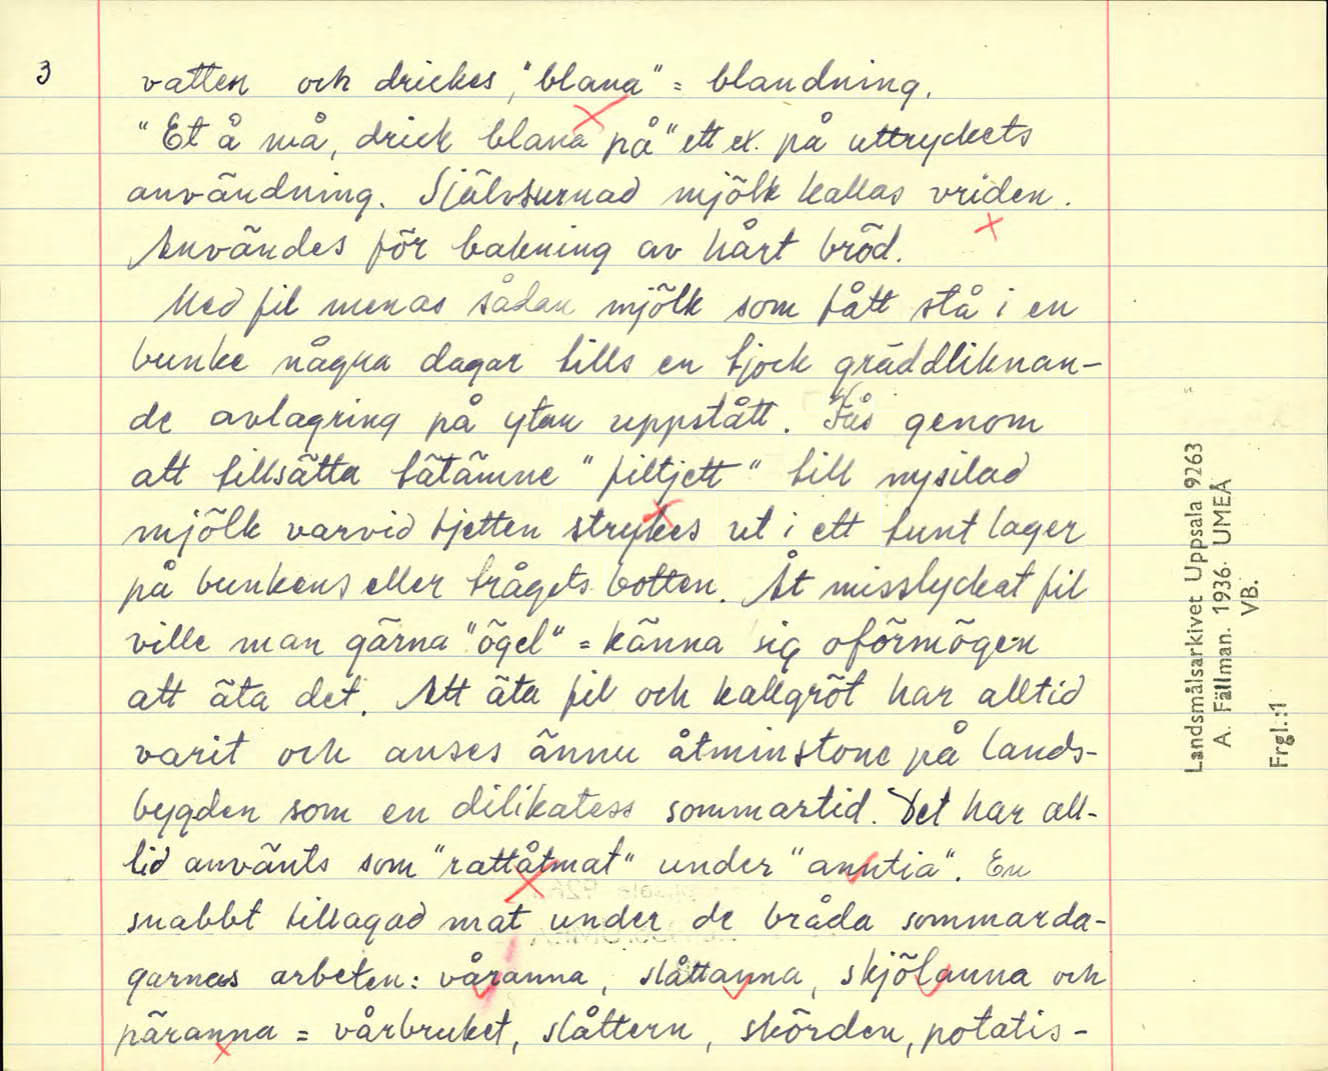 3
vatten och drickes, "blana" = blandning.
"Et å må, drick blana på" ett ex. på uttryckets
användning. Självsurnad mjölk kallas vriden.
Användes för bakning av hårt bröd.
Med fil menas sådan mjölk som fått stå i en
bunke några dagar tills en tjock gräddliknan-
de avlagring på ytan uppstått. Fås genom
att tillsätta tätämne "filtjett" till nysilad
mjölk varvid tjetten strykes ut i ett tunt lager
på bunkens eller trågets botten. Åt misslyckat fil
ville man gärna "ögel" = känna sig oförmögen
att äta det. Att äta fil och kallgröt har alltid
varit och anses ännu åtminstone på lands-
bygden som en dilikatess sommartid. Det har all-
tid använts som "rattåtmat" under "anntia". En
snabbt tillagad mat under de bråda sommarda-
garnas arbeten: våranna, slåttanna, skjölanna och
päranna = vårbruket, slåttern, skörden, potatis-
Landsmålsarkivet Uppsala 9263
A. Fällman. 1936. UMEÅ
VB.
Frgl.:1